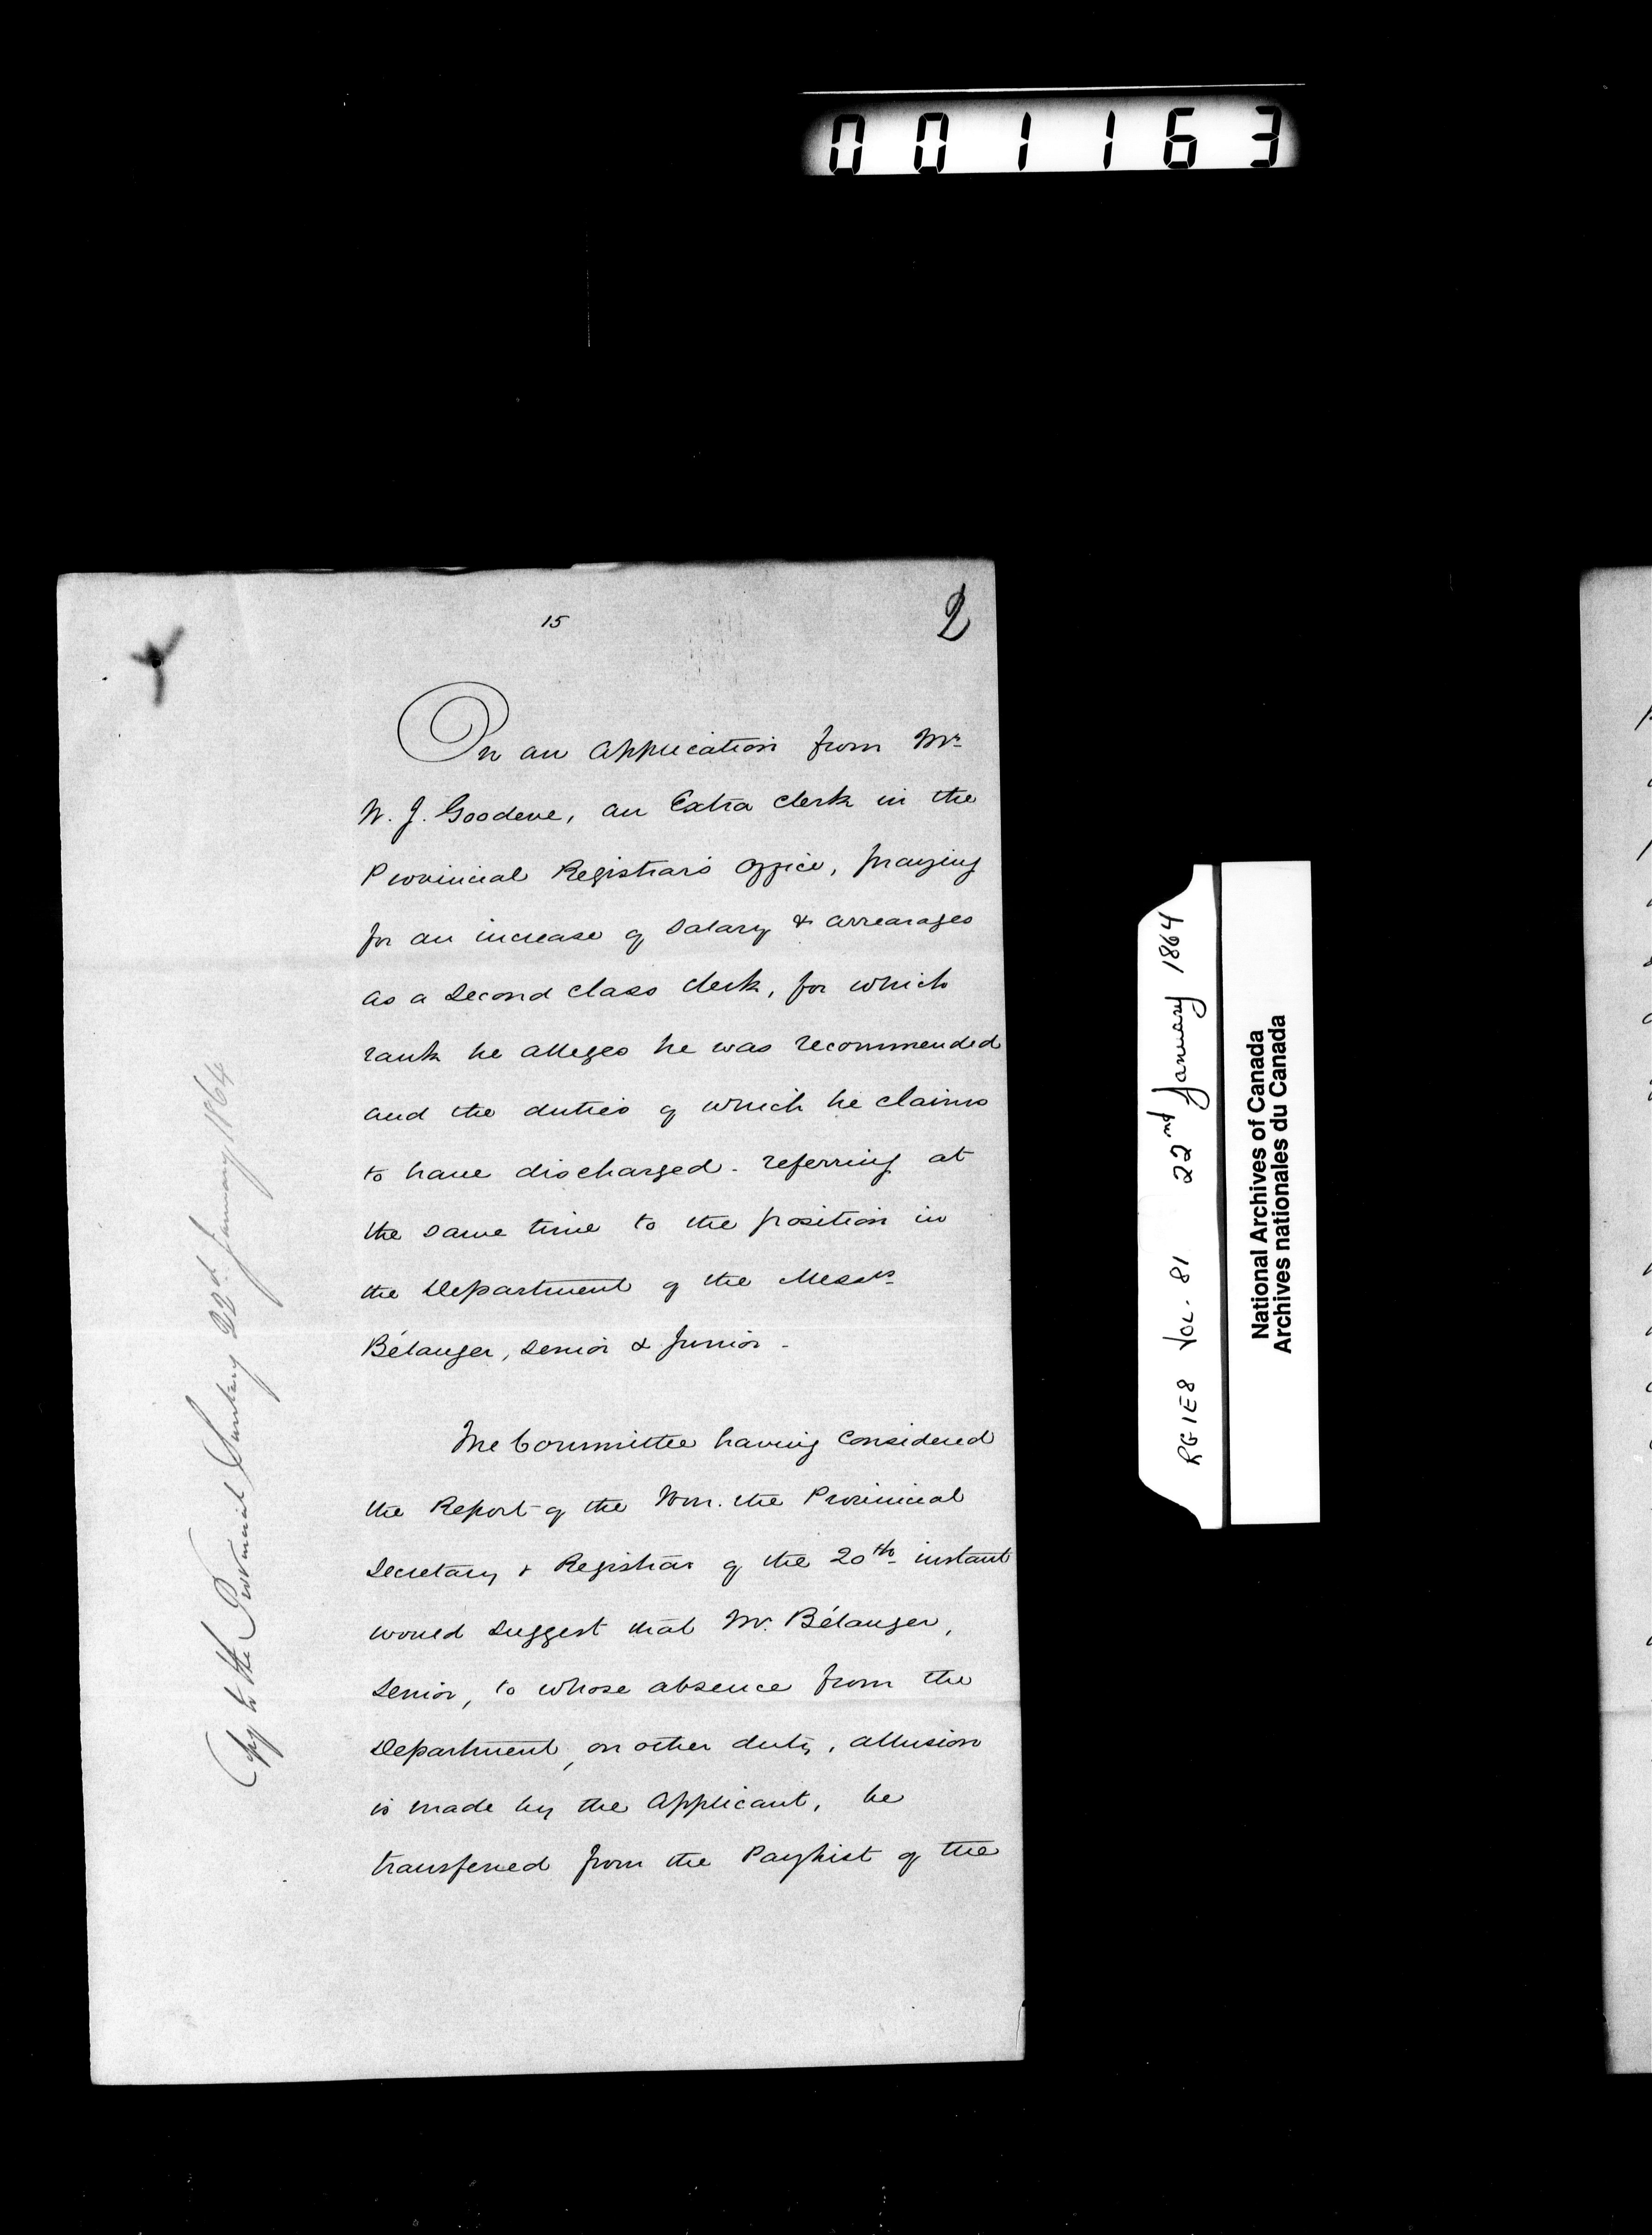 001163
15
2
On an application from Mr.
W. J. Goodeve, an Extra Clerk in the
Provincial Registrar's Office, praying
for an increase of Salary & arrearages
as a Second Class Clerk, for which
rank he alleges he was recommended
and the duties of which he claims
to have discharged - referring at
the same time to the position in
the Department of the Messrs.
Bélanger, Senior & Junior -
The Committee having Considered
the Report of the Hon. the Provincial
Secretary & Registrar of the 20th instant
would suggest that Mr. Bélanger,
Senior, to whose absence from the
Department, on other duty, allusion
is made by the Applicant, be
transferred from the Pay list of the
Copy to the Provincial Secretary 22d. January 1864
RG1E8 Vol. 81 22nd January 1864
National Archives of Canada
Archives nationales du Canada